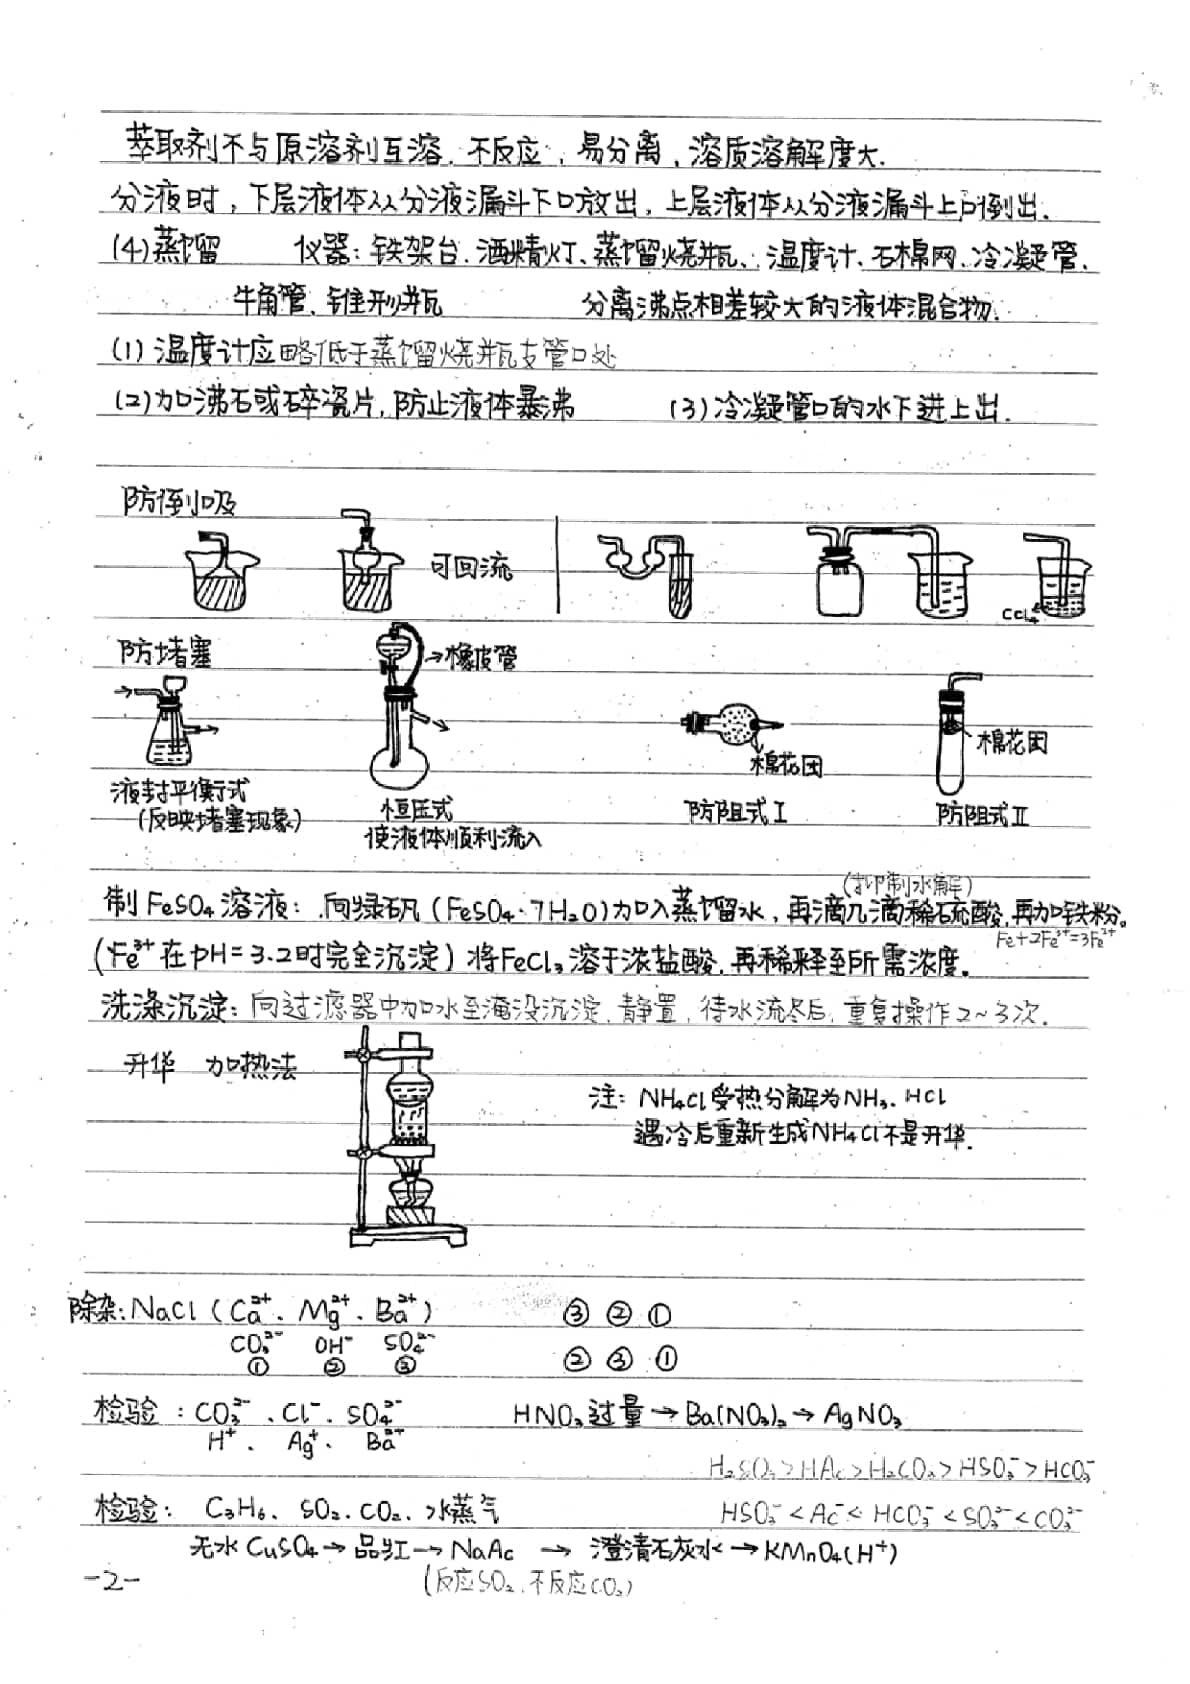 萃取剂不与原溶剂互溶、不反应,易分离,溶质溶解度大.
分液时,下层液体从分液漏斗下口放出,上层液体从分液漏斗上口倒出.
(4)蒸馏 仪器:铁架台、酒精灯、蒸馏烧瓶、温度计、石棉网、冷凝管、
牛角管、锥形瓶 分离沸点相差较大的液体混合物.
(1)温度计应略低于蒸馏烧瓶支管口处
(2)加沸石或碎瓷片,防止液体暴沸 (3)冷凝管口的水下进上出.
防倒吸
可回流
CCl₄
防堵塞
橡皮管
棉花团
棉花团
液封平衡式
(反映堵塞现象)
恒压式
使液体顺利流入
防阻式Ⅰ
防阻式Ⅱ
(抑制水解)
制FeSO₄溶液:向绿矾(FeSO₄·7H₂O)加入蒸馏水,再滴几滴稀硫酸,再加铁粉。
Fe+2Fe³⁺=3Fe²⁺
(Fe³⁺在pH=3.2时完全沉淀)将FeCl₃溶于浓盐酸,再稀释至所需浓度。
洗涤沉淀:向过滤器中加水至淹没沉淀,静置,待水流尽后,重复操作2~3次.
升华 加热法
注:NH₄Cl受热分解为NH₃、HCl
遇冷后重新生成NH₄Cl不是升华.
除杂:NaCl(Ca²⁺、Mg²⁺、Ba²⁺) ③ ② ①
CO₃²⁻ OH⁻ SO₄²⁻
① ② ③ ② ③ ①
检验:CO₃²⁻、Cl⁻、SO₄²⁻ HNO₃过量→Ba(NO₃)₂→AgNO₃
H⁺、Ag⁺、Ba²⁺
H₂SO₃>HAc>H₂CO₃>HSO₃⁻>HCO₃⁻
检验:C₃H₆、SO₂、CO₂、水蒸气 HSO₃⁻<Ac⁻<HCO₃⁻<SO₃²⁻<CO₃²⁻
无水CuSO₄→品红→NaAc→澄清石灰水→KMnO₄(H⁺)
(反应SO₂,不反应CO₂)
-2-